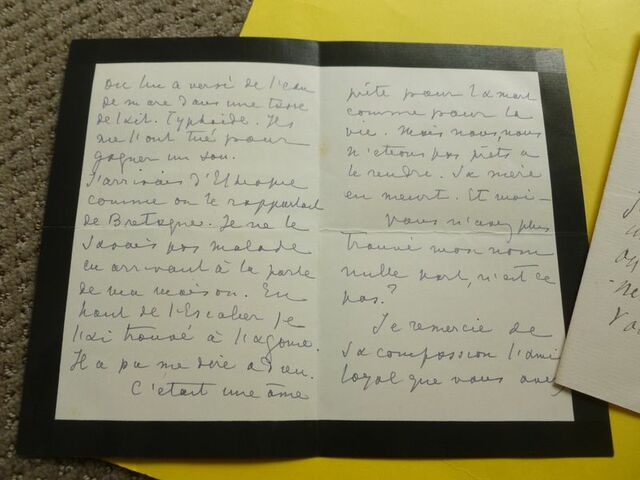 on lui a versé de l'eau
de mare dans une tasse
de lait. Typhoïde. Ils
me l'ont tué pour
gagner un sou.
J'arrivais d'Ethiopie
comme on le rapportait
de Bretagne. Je ne le
savais pas malade
en arrivant à la porte
de ma maison. En
haut de l'Escalier je
l'ai trouvé à l'agonie.
Il a pu me dire adieu.
C'était une âme
prête pour la mort
comme pour la
vie. Mais nous, nous
n'étions pas prêts à
le rendre. Sa mère
en meurt. Et moi—
Vous n'avez plus
trouvé mon nom
nulle part, n'est ce
pas?
Je remercie de
sa compassion l'ami
loyal que vous avez